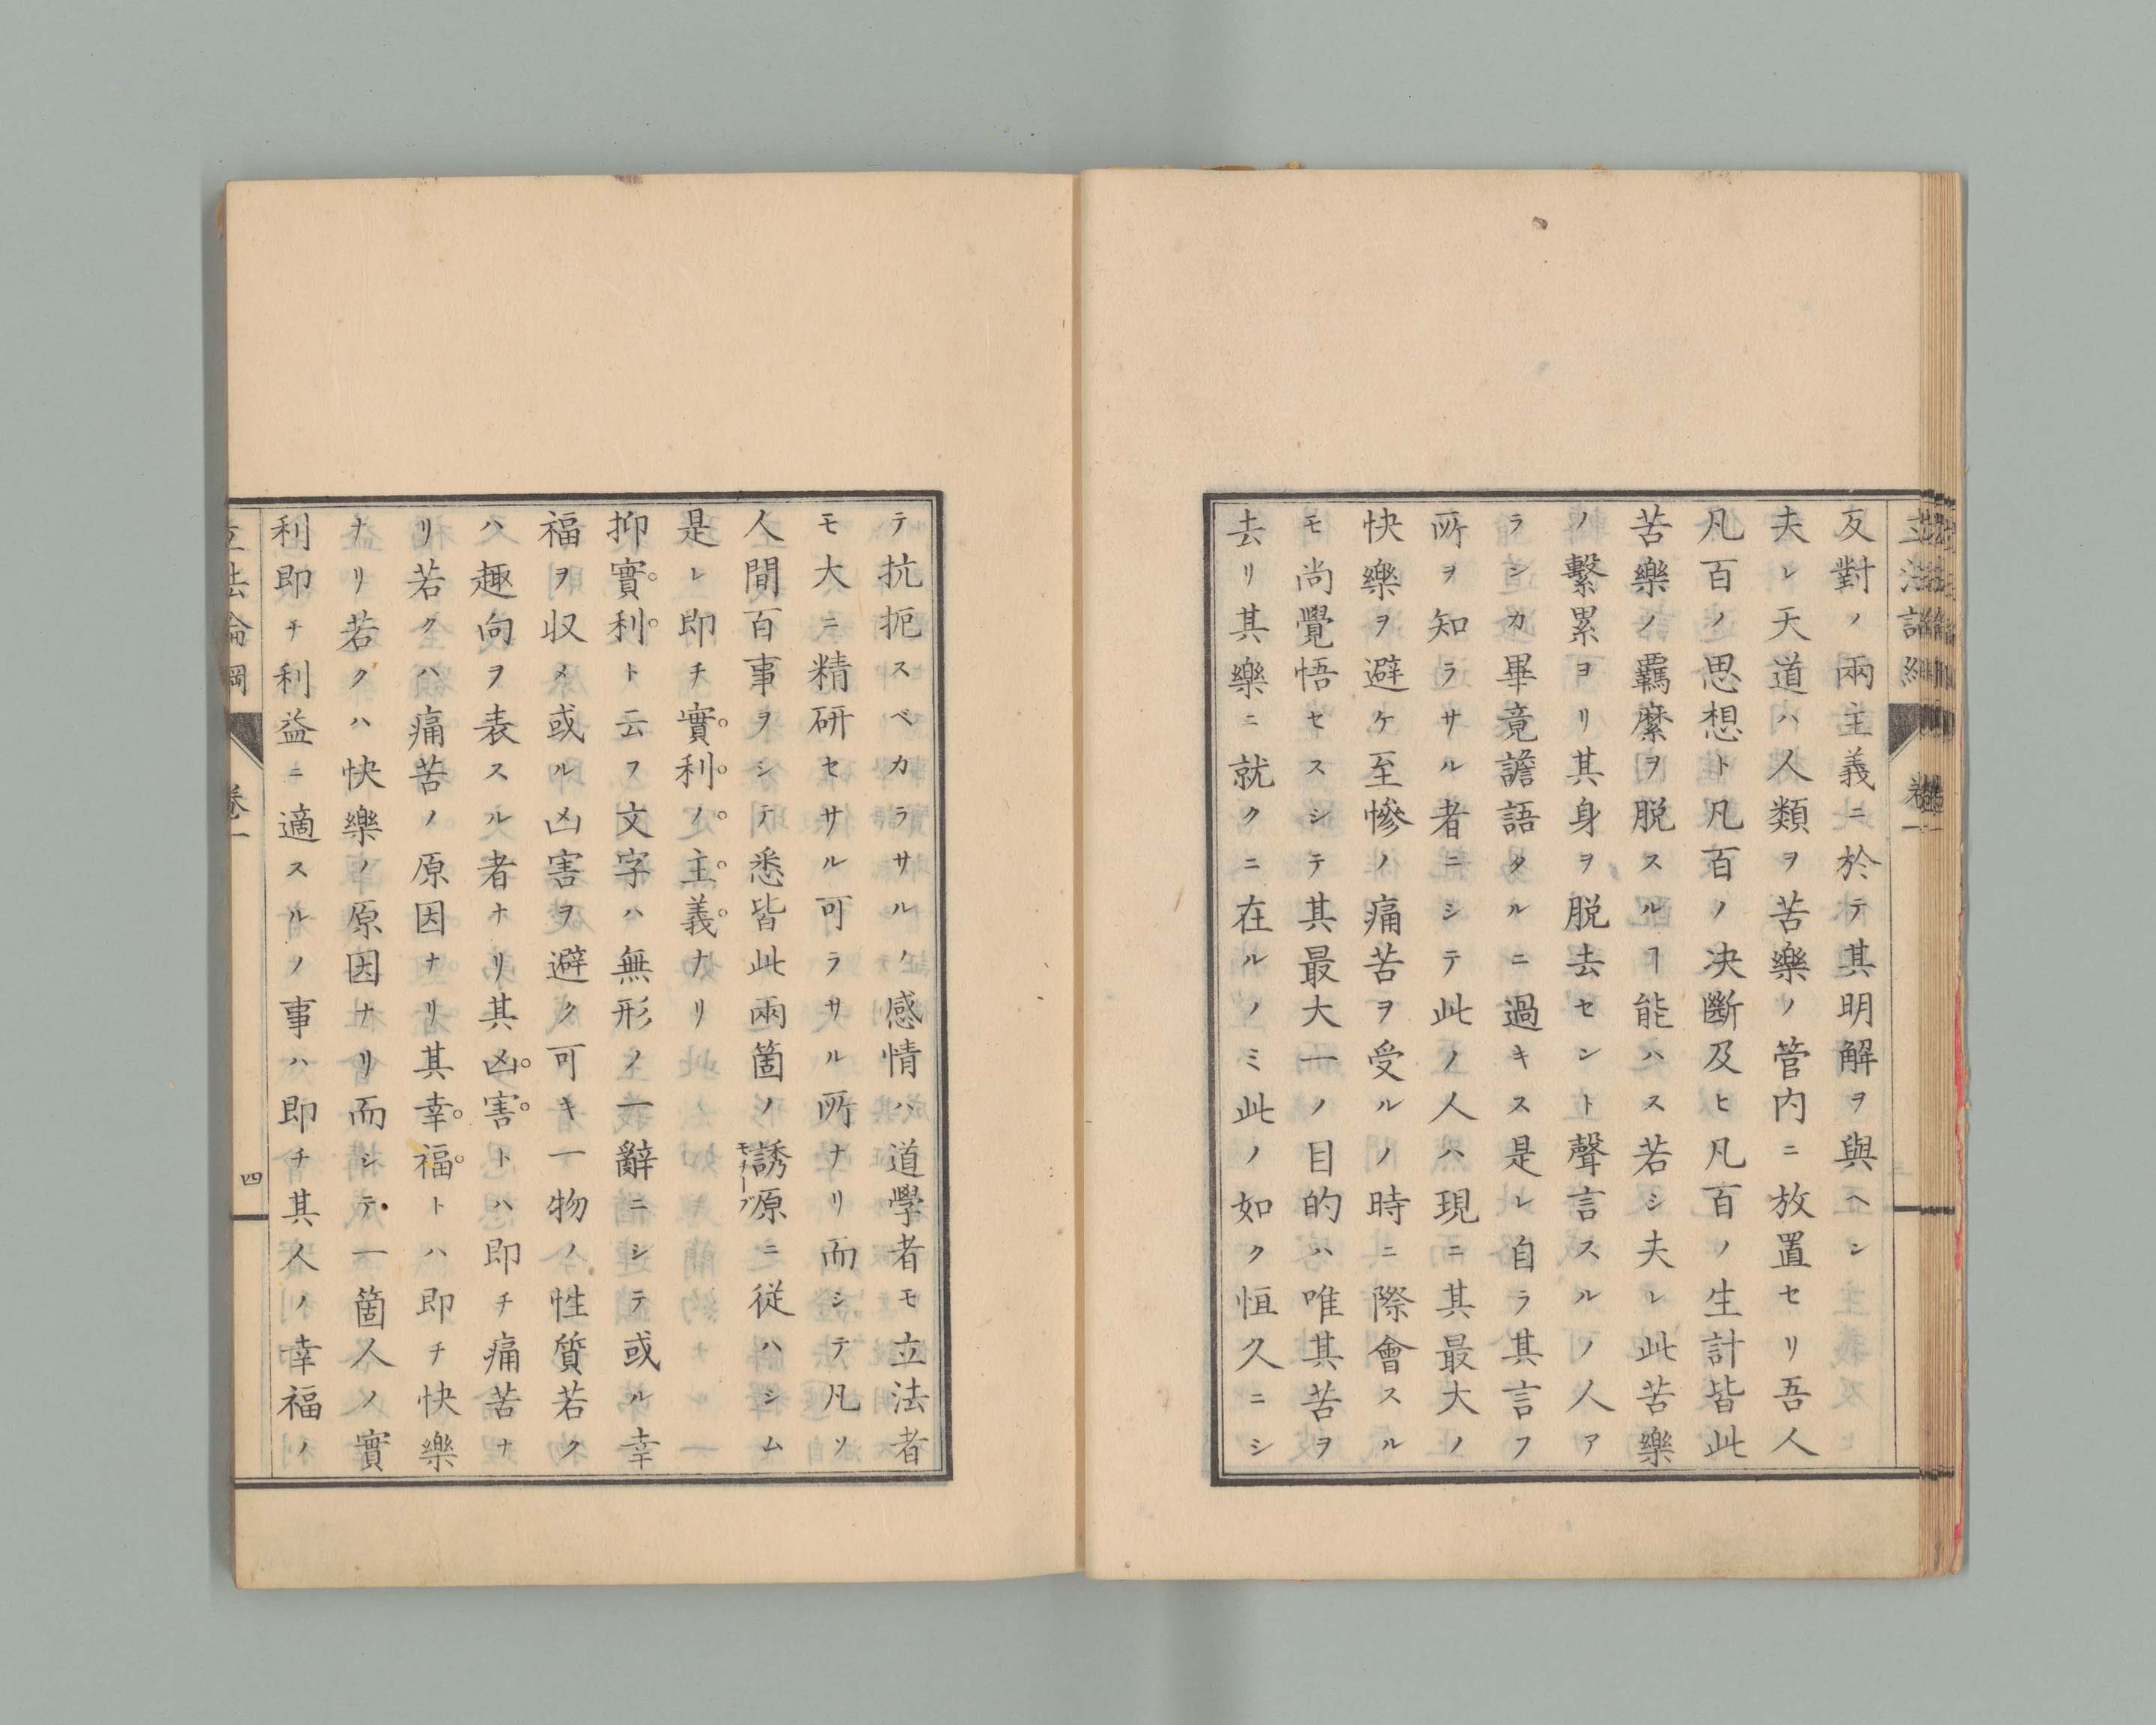 反對ノ兩主義ニ於テ其明解ヲ與ヘン
夫レ天道ハ人類ヲ苦樂ノ管内ニ放置セリ吾人
凡百ノ思想ト凡百ノ决斷及ヒ凡百ノ生計皆此
苦樂ノ羈縻ヲ脱スルヿ能ハス若シ夫レ此苦樂
ノ繫累ヨリ其身ヲ脱去セント聲言スルノ人ア
ラシカ畢竟譫語タルニ過キス是レ自ラ其言フ
所ヲ知ラサル者ニシテ此ノ人ハ現ニ其最大ノ
快樂ヲ避ケ至慘ノ痛苦ヲ受ルノ時ニ際會スル
モ尚覺悟セスシテ其最大一ノ目的ハ唯其苦ヲ
去リ其樂ニ就クニ在ルノミ此ノ如ク恒久ニシ
テ抗扼スベカラサルノ感情ハ道學者モ立法者
モ大ニ精研セサル可ラサル所ナリ而シテ凡ソ
人間百事ヲシテ悉皆此兩箇ノ誘原ニ從ハシム
モチーブ
是レ即チ實利ノ主義ナリ
抑實利ト云フ文字ハ無形ノ一辭ニシテ或ル幸
福ヲ収メ或ル凶害ヲ避ク可キ一物ノ性質若ク
ハ趣向ヲ表スル者ナリ其凶害トハ即チ痛苦ナ
リ若クハ痛苦ノ原因ナリ其幸福トハ即チ快樂
ナリ若クハ快樂ノ原因ナリ而シテ一箇人ノ實
利即チ利益ニ適スルノ事ハ即チ其人ノ幸福ノ
立法論綱 卷一 四